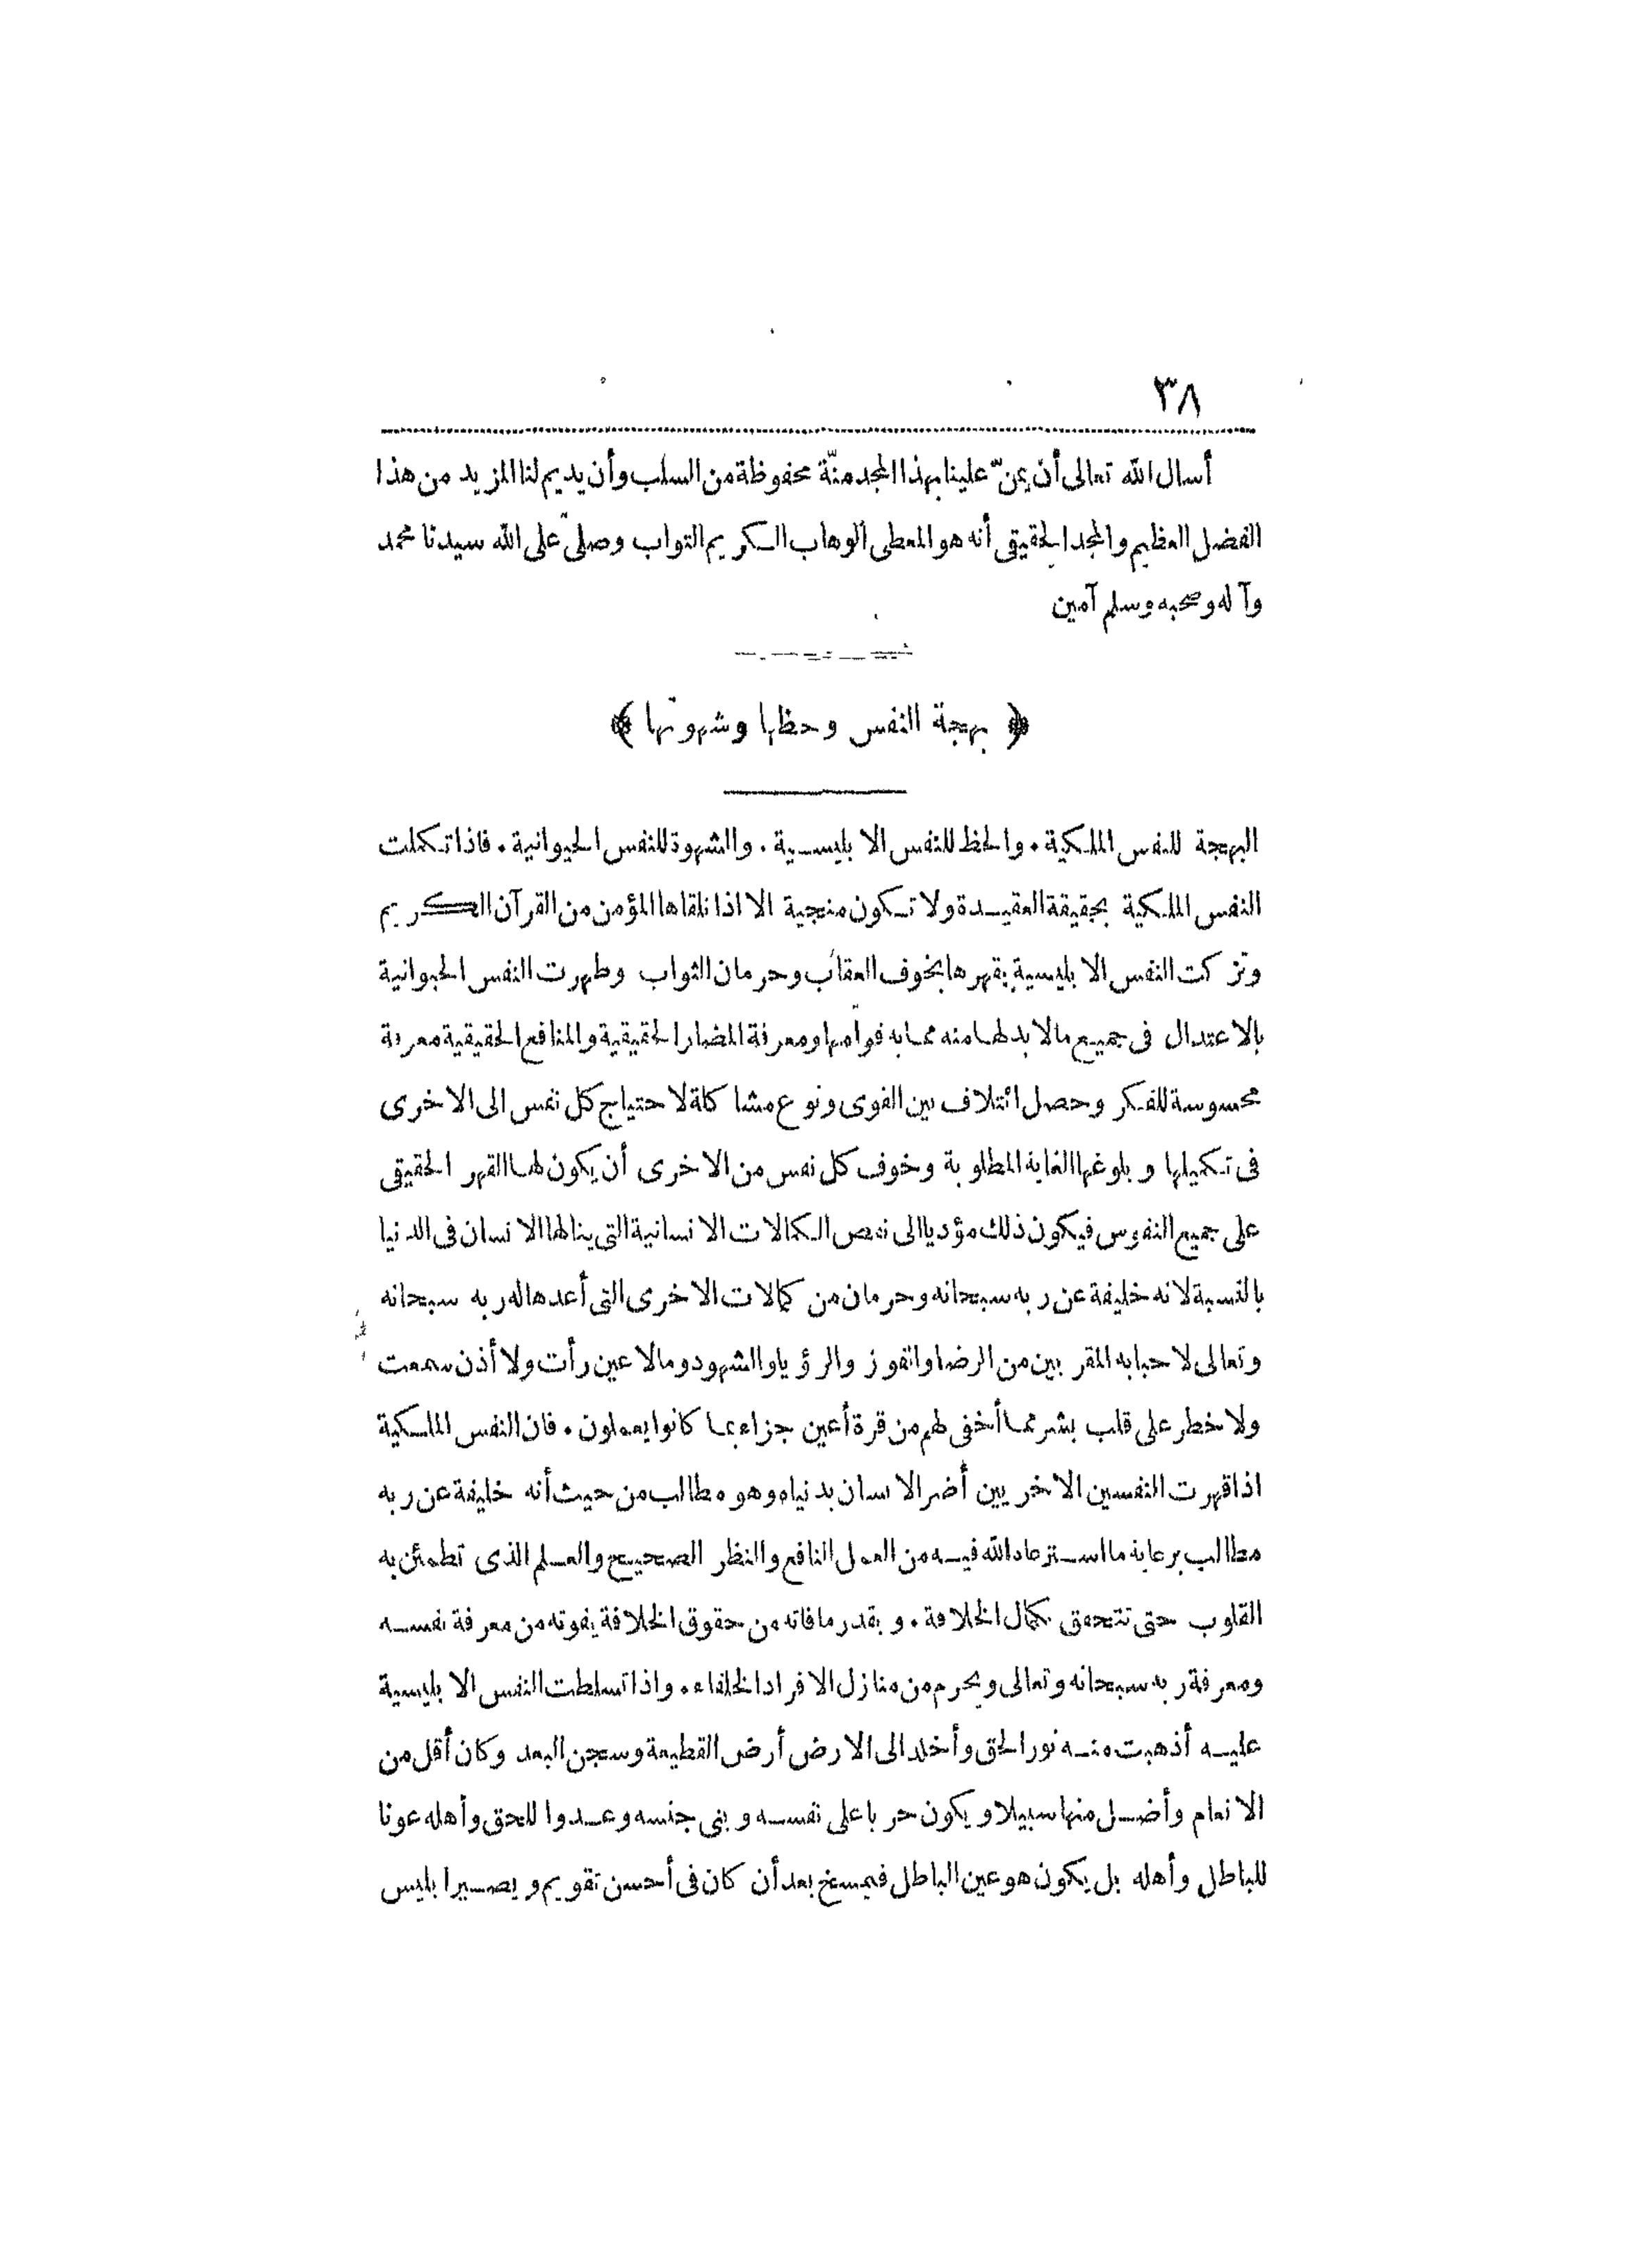 ٣٨
أسال الله تعالى أن يمنّ علينا بهذا المجد منّة محفوظة من السلب وأن يديم لنا المزيد من هذا
الفضل العظيم والمجد الحقيقى أنه هو المعطى الوهاب الكريم التواب وصلىّ على الله سيدنا محمد
وآله وصحبه وسلم آمين
﴿ بهجة النفس وحظها وشهوتها ﴾
البهجة للنفس الملكية . والحظ للنفس الابليسية . والشهوة للنفس الحيوانية . فاذا تكملت
النفس الملكية بحقيقة العقيدة ولا تكون منجية الا اذا تلقاها المؤمن من القرآن الكريم
وتزكت النفس الابليسية بقهرها بخوف العقاب وحرمان الثواب وطهرت النفس الحيوانية
بالاعتدال فى جميع ما لا بد لها منه مما به قوامها ومعرفة المضار الحقيقية والمنافع الحقيقية معرفة
محسوسة للفكر وحصل ائتلاف بين القوى ونوع مشاكلة لاحتياج كل نفس الى الاخرى
فى تكميلها وبلوغها الغاية المطلوبة وخوف كل نفس من الاخرى أن يكون لها القهر الحقيقى
على جميع النفوس فيكون ذلك مؤديا الى نقص الكمالات الانسانية التى ينالها الانسان فى الدنيا
بالنسبة لانه خليفة عن ربه سبحانه وحرمان من كمالات الاخرى التى أعدها له ربه سبحانه
وتعالى لاحبابه المقربين من الرضا والفوز والرؤيا والشهود وما لا عين رأت ولا أذن سمعت
ولا خطر على قلب بشر مما أخفى لهم من قرة أعين جزاء بما كانوا يعملون . فان النفس الملكية
اذا قهرت النفسين الاخريين أضر الانسان بدنياه وهو مطالب من حيث أنه خليفة عن ربه
مطالب برعاية ما استرعاه الله فيه من العمل النافع والنظر الصحيح والعلم الذى تطمئن به
القلوب حتى تتحقق بكمال الخلافة . وبقدر ما فاته من حقوق الخلافة يفوته من معرفة نفسه
ومعرفة ربه سبحانه وتعالى ويحرم من منازل الافراد الخلفاء . واذا تسلطت النفس الابليسية
عليه أذهبت منه نور الحق وأخلد الى الارض أرض القطيعة وسجن البعد وكان أقل من
الانعام وأضل منها سبيلا ويكون حربا على نفسه وبنى جنسه وعدوا للحق وأهله عونا
للباطل وأهله بل يكون هو عين الباطل فيمسخ بعد أن كان فى أحسن تقويم ويصير ابليس